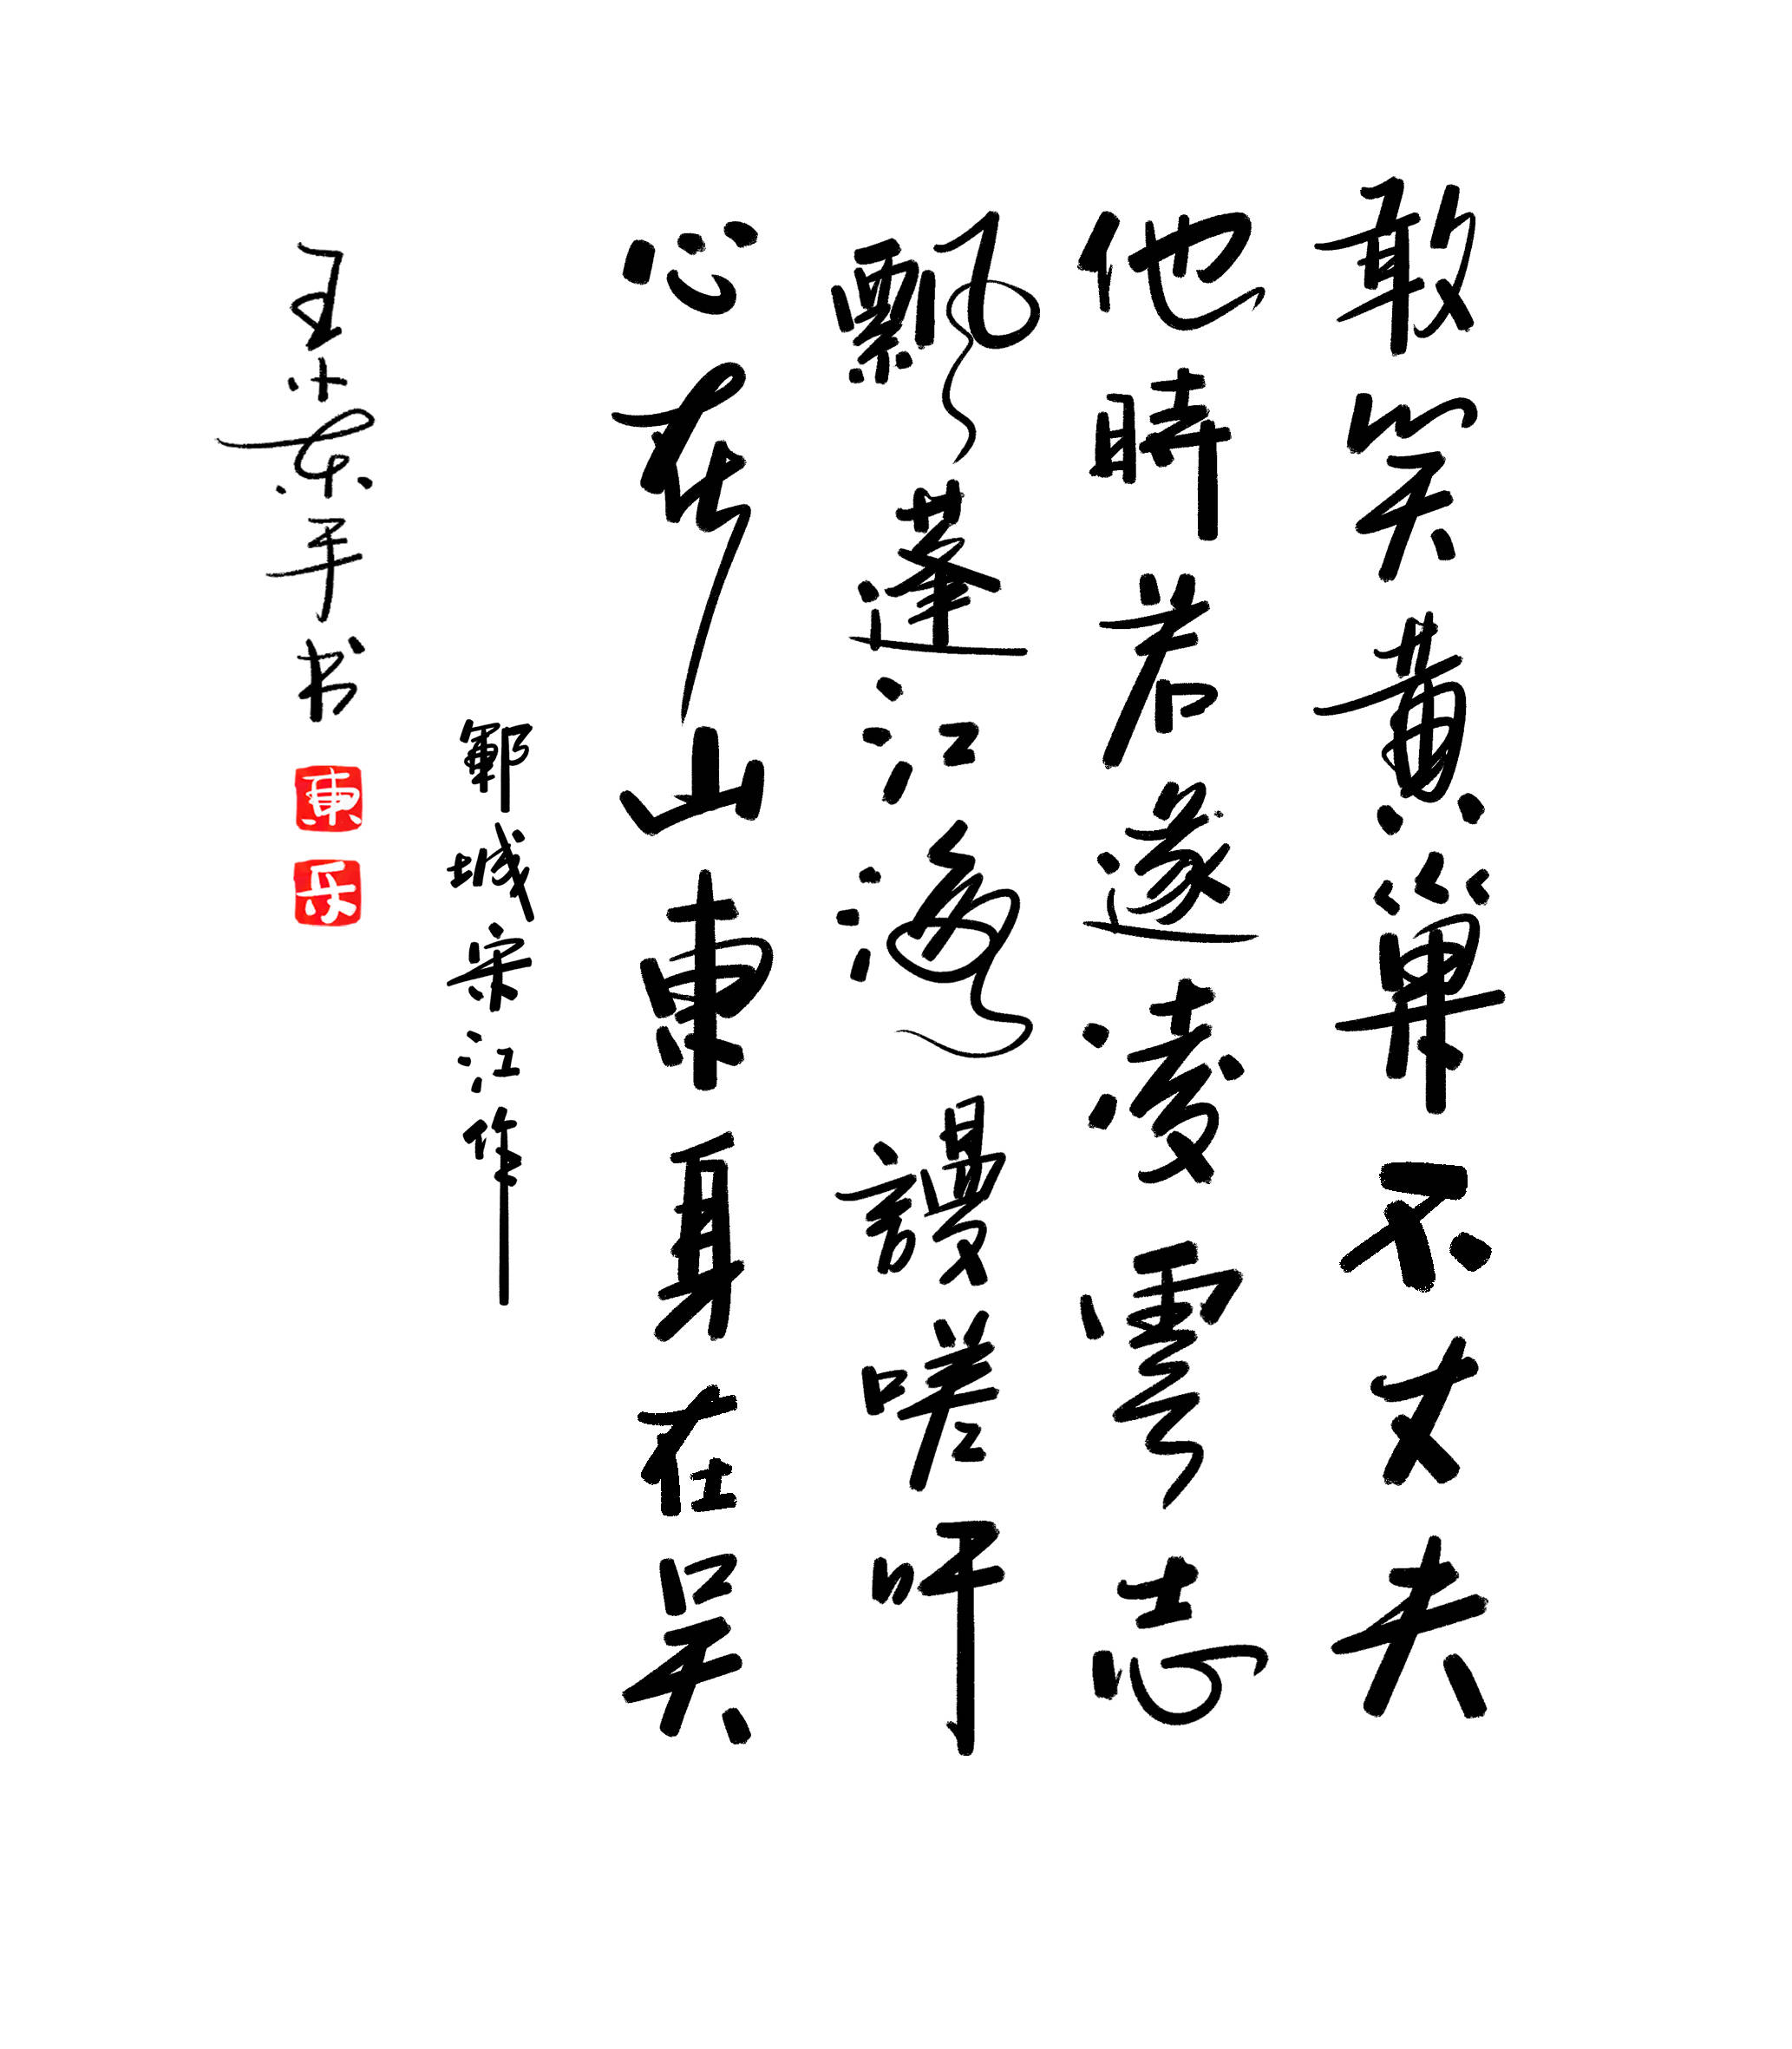 敢笑黄巢不丈夫
他時若遂凌雲志
飄蓬江海謾嗟吁
心在山東身在吴
鄆城宋江作
王 手书
東
乐